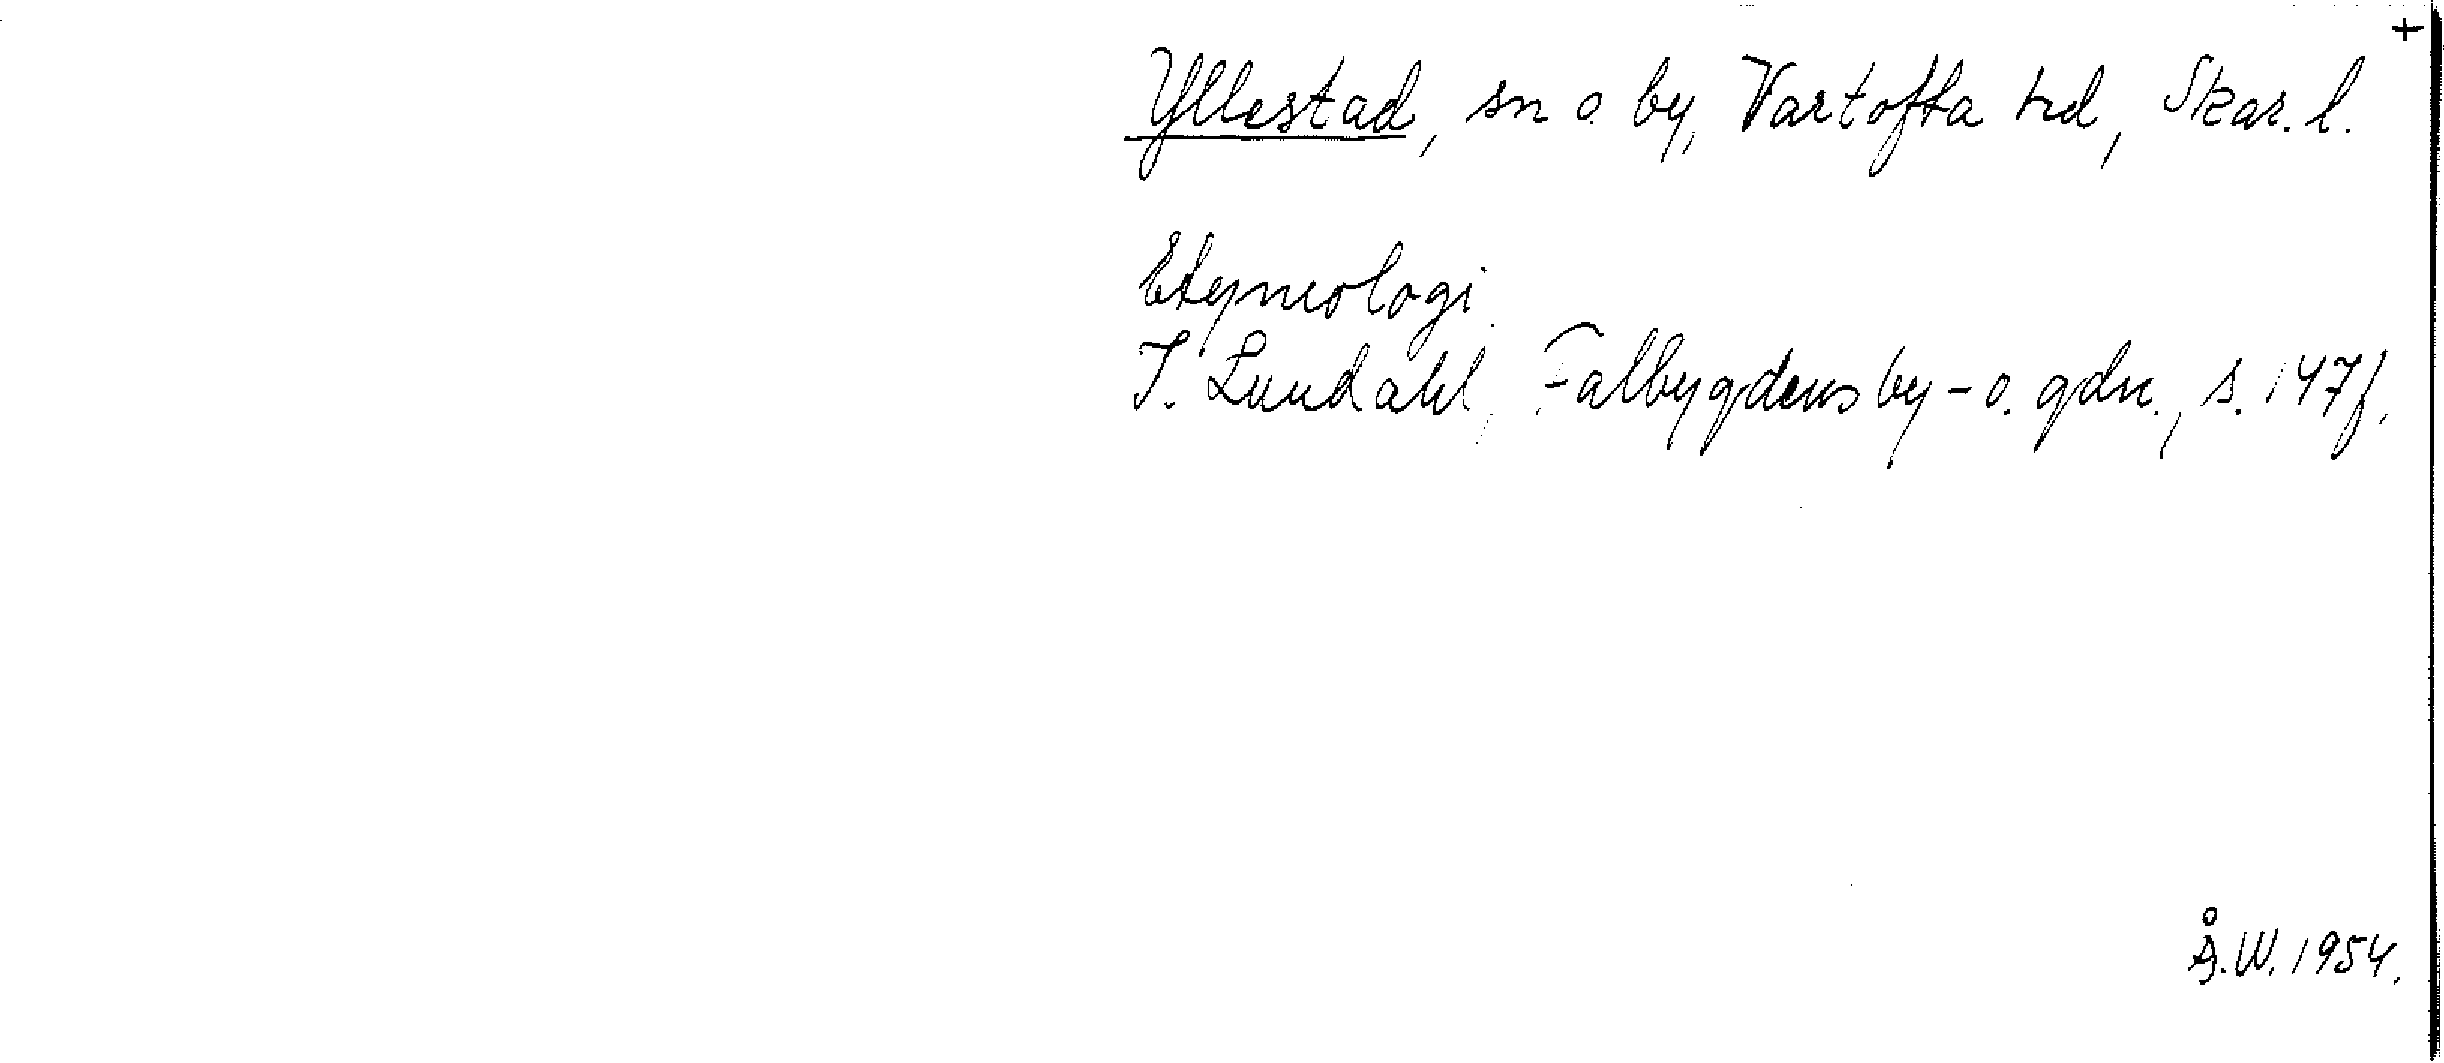 +
Yllestad, sn o. by, Vartofta hd, Skar. l.
Etymologi.
I. Lundahl, Falbygdens by- o. gdn., s. 147f.
Å.W. 1954.